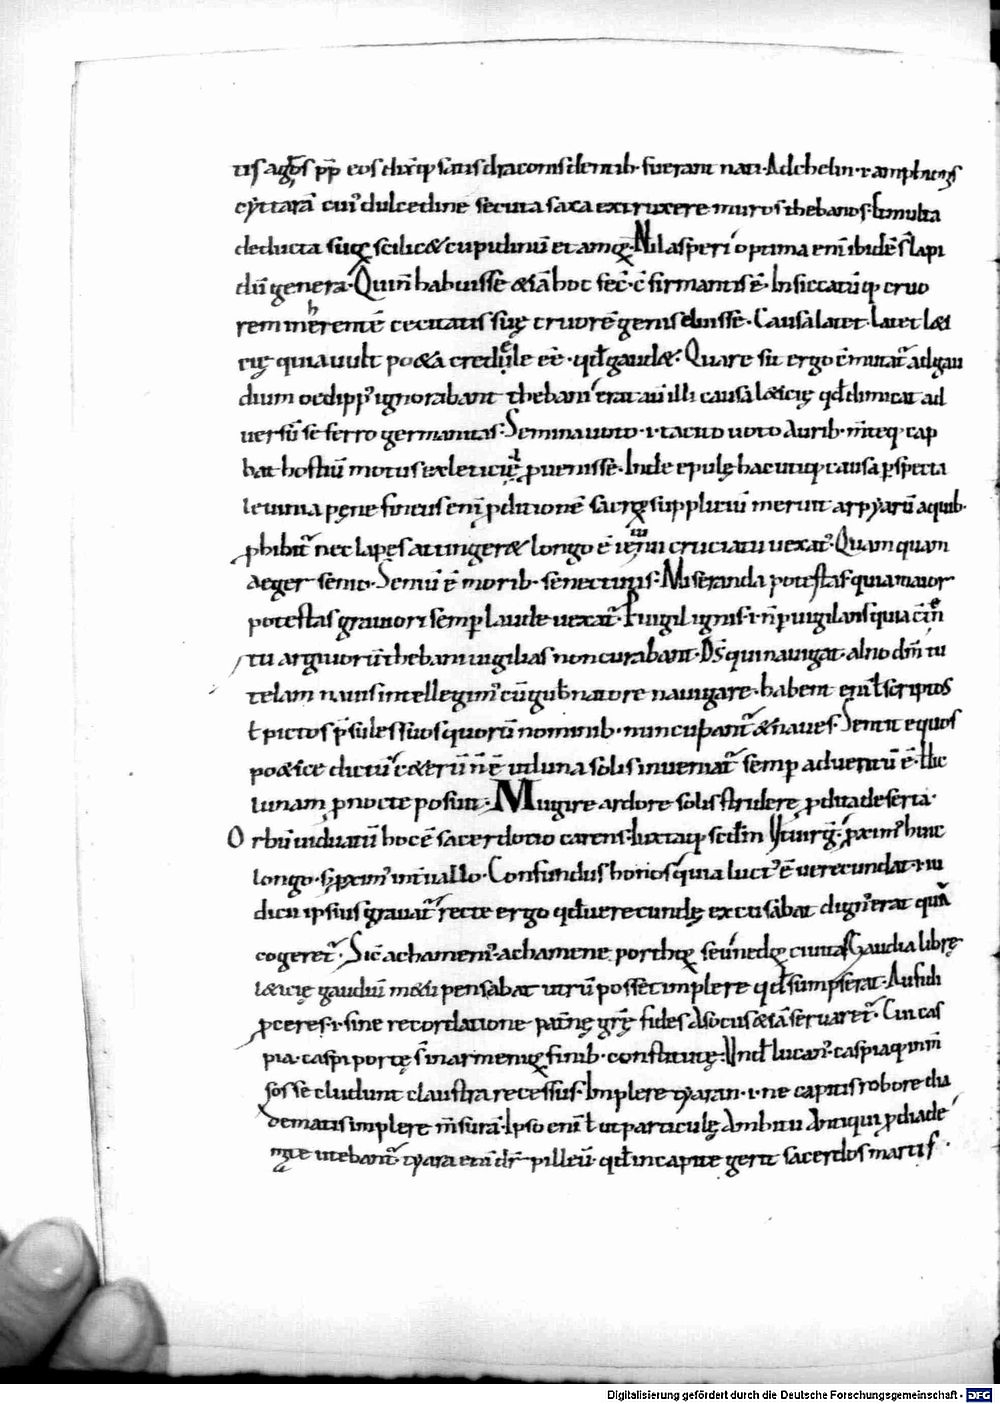 tis agros pp̄ eos dix̄ q̄ satis draconis dentib· fuerant nati· Ad chelin ·i· amphionis
cyttarā cui᾽ dulcedine secuta saxa extruxere muros thebanos· Et multa
deducta suę scilic& cupidinū et amoꝝ· Nil asperi optima eni ibidē s̄ lapi
dū genera· Quin̄ habuisse &iā hoc sec̄ c̄ firmantis ē· In siccatūq; cruo
rem merentē cecitatis suę cruorē genis eluisse· Causa latet· Latet l&i
cię quia uult po&a credule eē · qđ gaud&· Quare sit ergo c̄mutat᷑ ad gau
dium oedipp᾽ ignorabant thebani erat aū illi causa l&icię qđ dimicat ad
uersū se ferro germanitas· Semina uoto ·i· tacito uoto Aurib· m̄teq; cap
bat hostiū motus ex leticię ꝓuenisse· Inde epulę hac utiq; causa p̄specta
leuima pęne fineus eni ꝓditionē sacroꝝ suppliciū meruit arpyarū aquib·
ꝓhibit᷑ nec lapes atting& longo ē ieiuni cruciatu uexat᾽· Quamquam
aeger senio· Semū ē morib· senectutis· Miseranda potestas quia maior
potestas grauiori semp laude uexat᷑· Puigil ignis ·i· n̄ puigilans quia c̄m̄
tu argiuorū thebani uigilias non curabant· D̄s qui nauigat alno dm̄ tu
telam nauis intellegim᾽ cū gub̄natore nauigare· habent eni ł scriptos
ł pictos p̄sules suos quorū nominib· nuncupant᷑ & naues· Sentit equos
po&ice dictū ē &erū n̄ ē ut luna solis inueniat᷑ semp aduentū ē· Hic
lunam ꝓ nocte posuit· Mugire ardore solis stridere ꝓ dita deserta·
Orbū uiduatū hoc ē sacerdotio carens· Iuxtaq; scđm Yturg᷑· ꝓxim᾽ huic
longo· s; ꝓxim᾽ int̄uallo· Confundus honos quia luct᾽ ē uerecundat· iu
dicii ipsius grauat᷑ recte ergo qđ uerecundę excusabat dign᾽ erat quā
coger&᷑· Sic̄ achameni᾽ achamene porthoꝝ seu medoꝝ ciuitas Gaudia librę
l&icię gaudiū m&u pensabat utrū possēt implere qđ sumpserat· Aufidi
ꝓceres ·i· sine recordatione pat̄nę gr̄ę fides Asocus &iā seruaret᷑· Cui cas
pia· caspi portę s̄ in armenioꝝ finib· constitutę· Vnđ lucan᾽ caspiaq; inm̄
sos se cludunt claustra recessus· Implere tyaran ·i· ne capitis robore dia
dematis implere m̄surā· Ipso eni ł ut particulę Ambitu Antiqui ꝓ diade
mate utebant᷑ tyara etiā dr̄ pilleū qđ in capite gerit sacerdos martis·
Digitalisierung gefördert durch die Deutsche Forschungsgemeinschaft · DFG